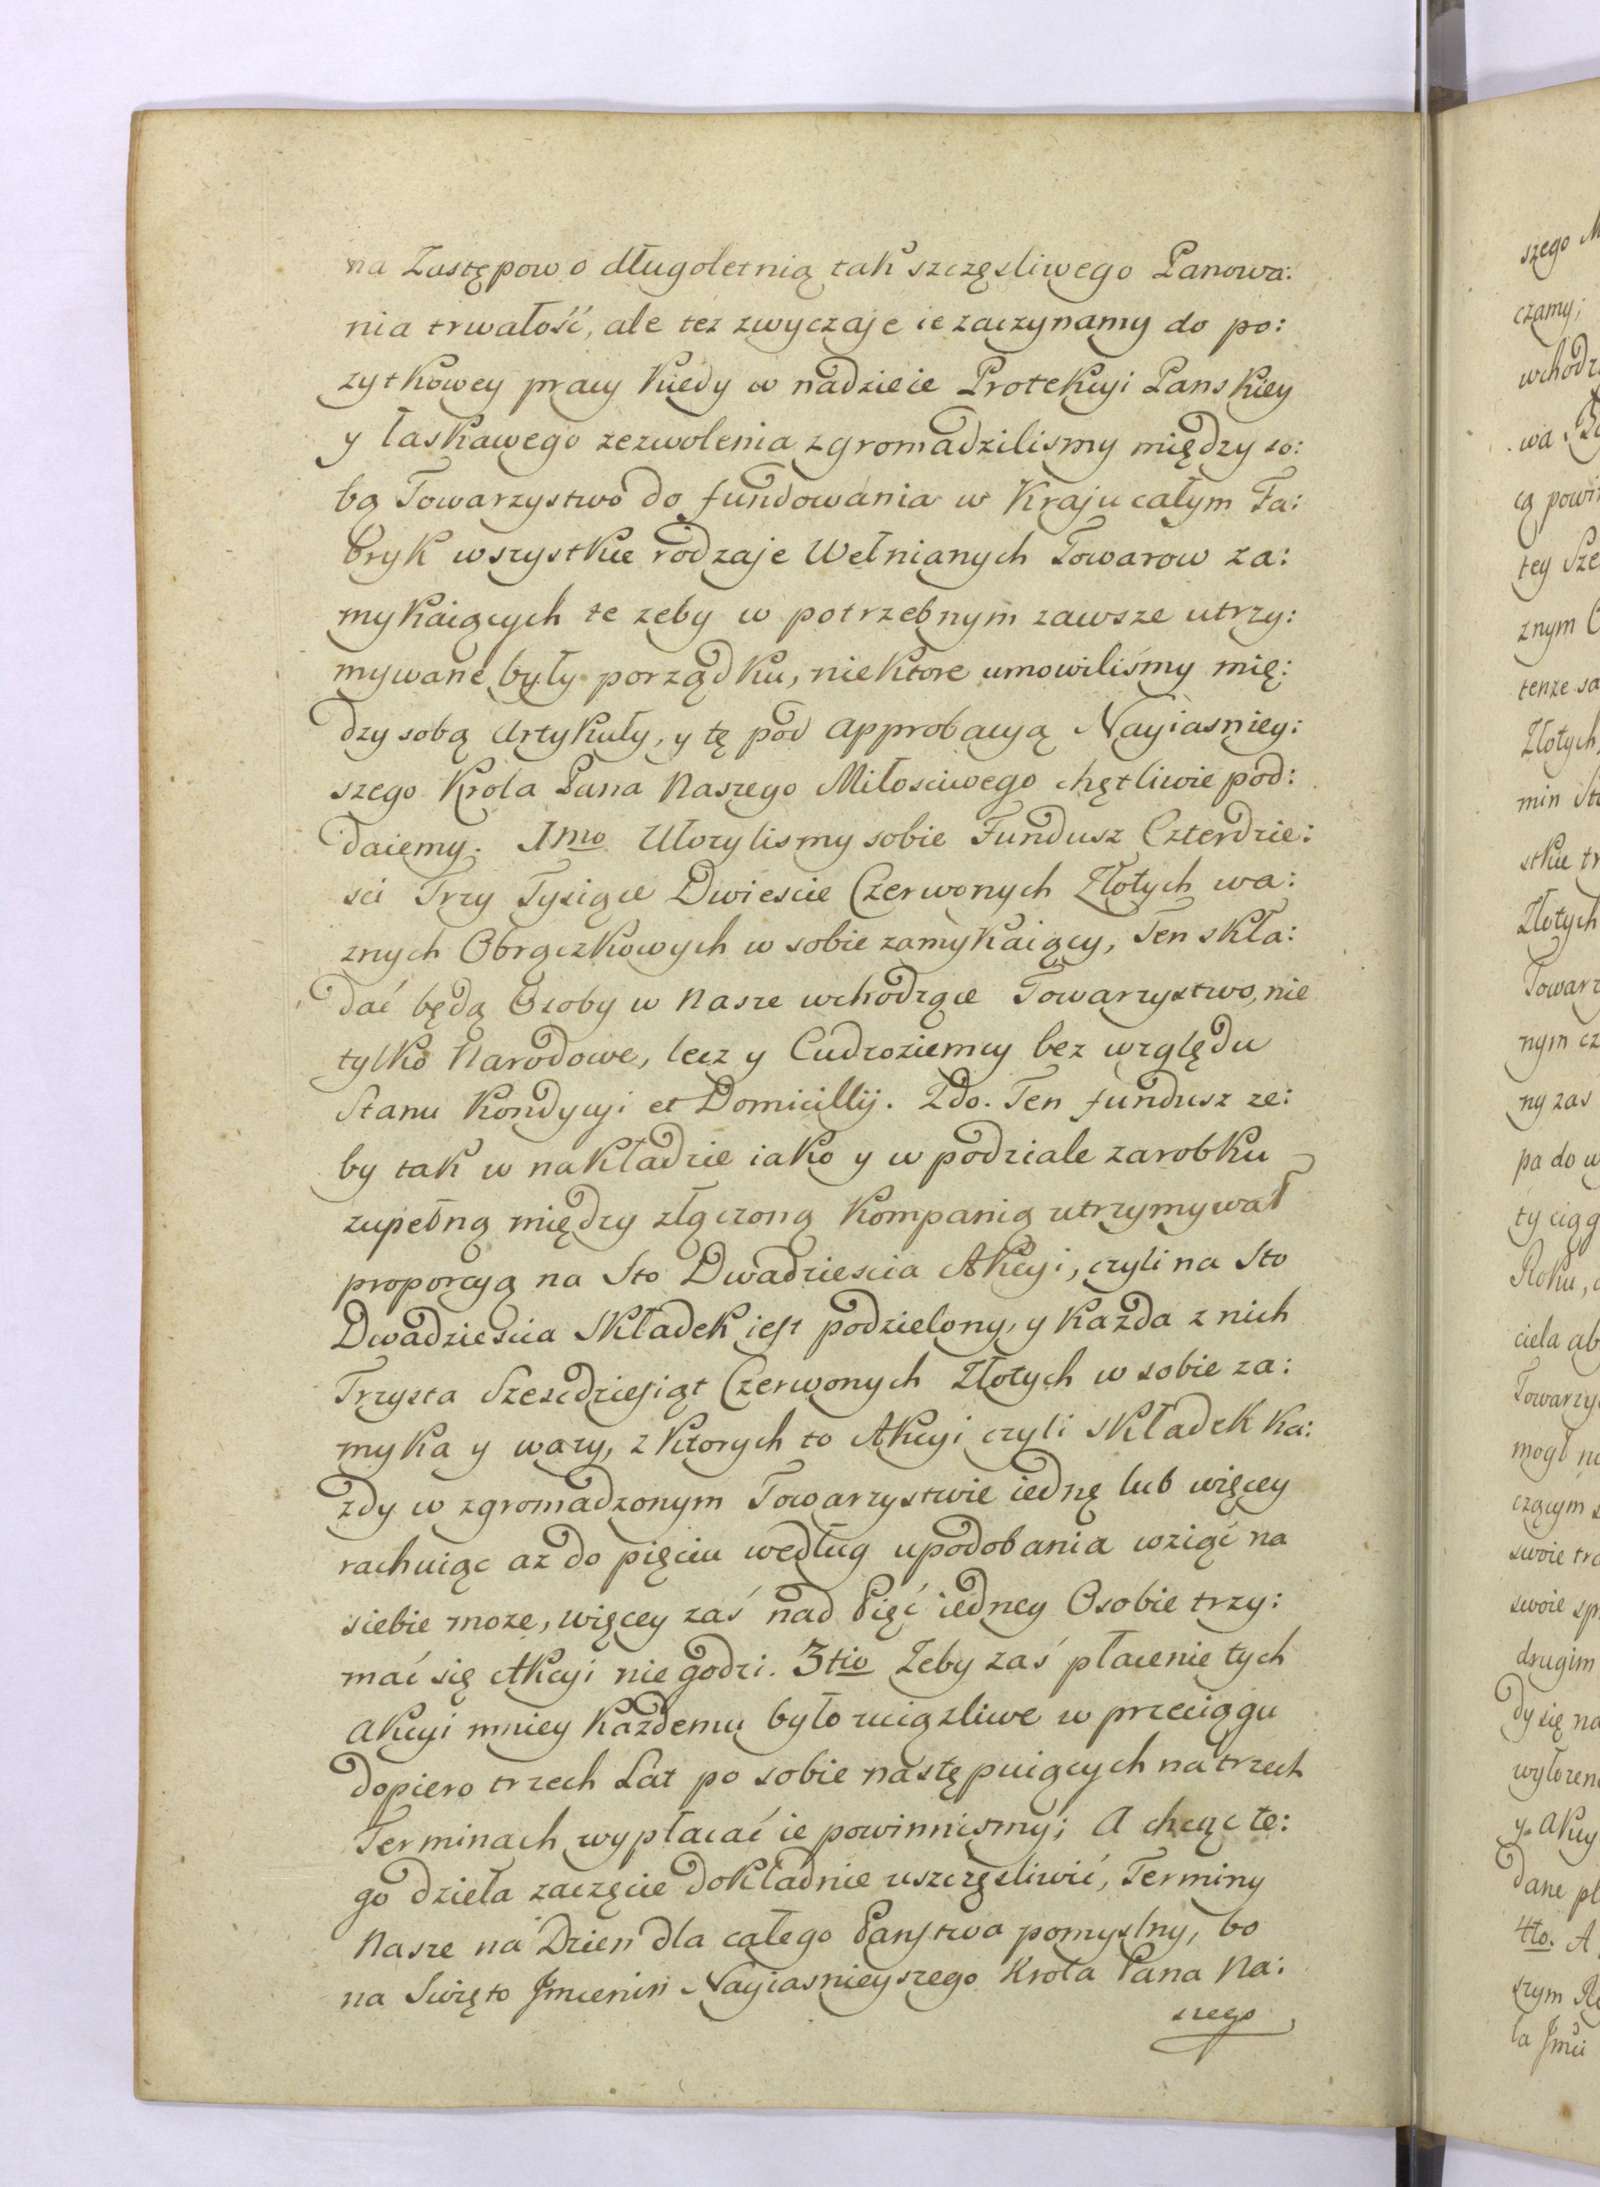 na Zastępow o długoletnią tak szczęsliwego Panowa:
nia trwałość, ale też zwyczaje ie zaczynamy do po:
zytkowey pracy kiedy w nadzieie Protekcyi Panskiey
y łaskawego zezwolenia zgromadzilismy między so:
bą Towarzystwo do fundowania w Kraju całym Fa:
bryk wszystkie rodzaje Wełnianych Towarow za:
mykaiących te zeby w potrzebnym zawsze utrzy:
mywane były porządku, niektore umowiliśmy mię:
dzy sobą Artykuły, y tę pod approbacyą Nayiasniey:
szego Krola Pana Naszego Miłosciwego chętliwie pod:
daiemy. 1mo Ułozylismy sobie Fundusz Czterdzie:
sci Trzy Tysiące Dwiescie Czerwonych Złotych wa:
znych Obrączkowych w sobie zamykaiący, Ten skła:
dać będą Osoby w Nasze wchodzące Towarzystwo, nie
tylko Narodowe, lecz y Cudzoziemcy bez względu
Stanu Kondycyi et Domicillij. 2do. Ten fundusz ze:
by tak w nakładzie iako y w podziale zarobku
zupełną między złączoną Kompanią utrzymywał
proporcyą na Sto Dwadziescia Akcyi, czyli na Sto
Dwadziescia Składek iest podzielony, y kazda z nich
Trzysta Szescdziesiąt Czerwonych Złotych w sobie za:
myka y wazy, z ktorych to Akcyi czyli Składek ka:
zdy w zgromadzonym Towarzystwie iednę lub więcey
rachuiąc az do pięciu według upodobania wziąć na
siebie moze, więcey zaś nad Pięć iedney Osobie trzy:
mać się Akcyi nie godzi. 3tio Zeby zaś płacenie tych
Akcyi mniey kazdemu było uciązliwe w przeciągu
dopiero trzech Lat po sobie następuiących na trzech
Terminach wypłacać ie powinnismy; A chcąc te:
go dzieła zaczęcie dokładnie uszczęsliwić, Terminy
Nasze na Dzien dla całego Panstwa pomyslny, bo
na Swięto Jmienin Nayiasnieyszego Krola Pana Na:
szego
szego
czamy;
cą powi
tey Sze
znym
tenze sa
Złotych,
min
Złotych
Towarz
nym cz
ny zas
pa do w
Roku,
ciela ab
Towarzy
mogł
czącym
swoie
swoie
drugim
dy się na
wyłozen
y Akcy
dane
4to. A
szym
la